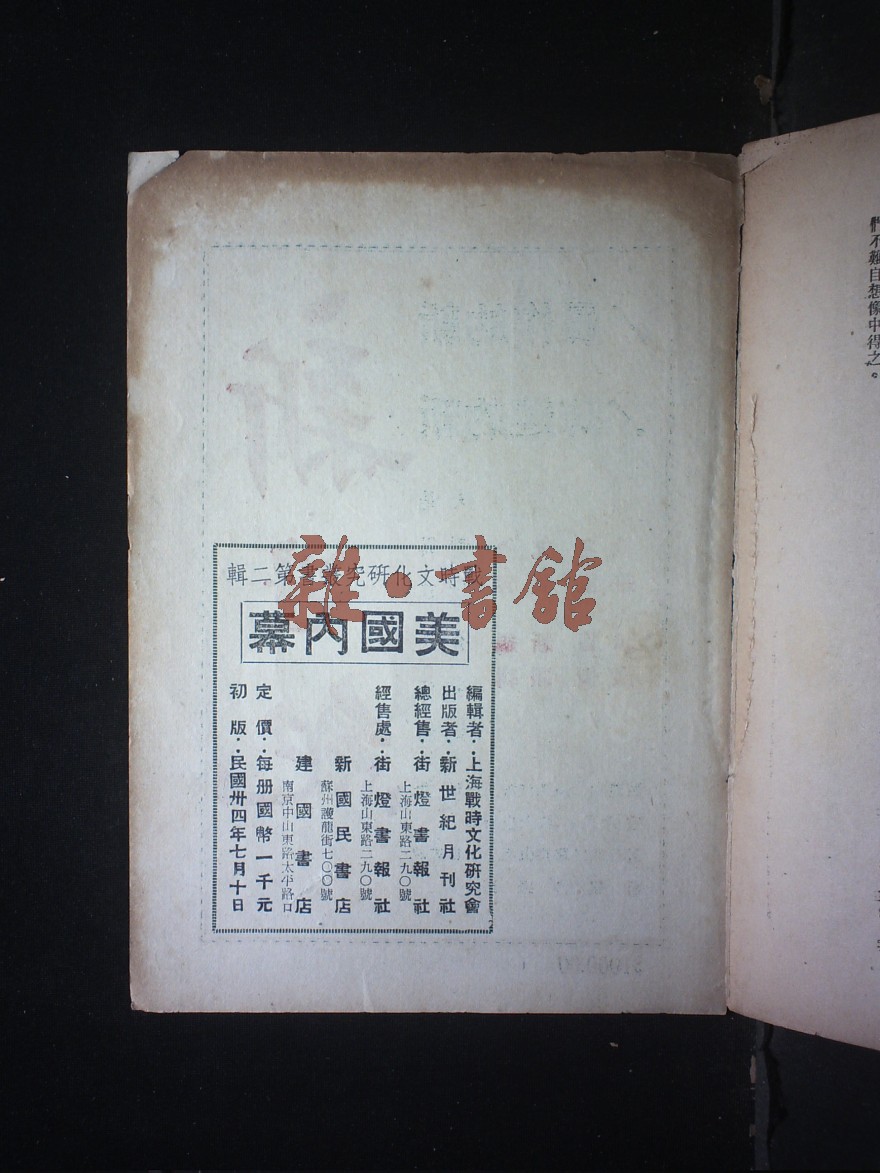 們不難自想像中得之。
戰時文化研究叢書第二輯
美國內幕
編輯者‥上海戰時文化研究會
出版者‥新世紀月刊社
總經售‥街燈書報社
上海山東路二九〇號
經售處‥街燈書報社
上海山東路二九〇號
新國民書店
蘇州護龍街七〇〇號
建國書店
南京中山東路太平路口
定價‥每册國幣一千元
初版‥民國卅四年七月十日
雜·書館